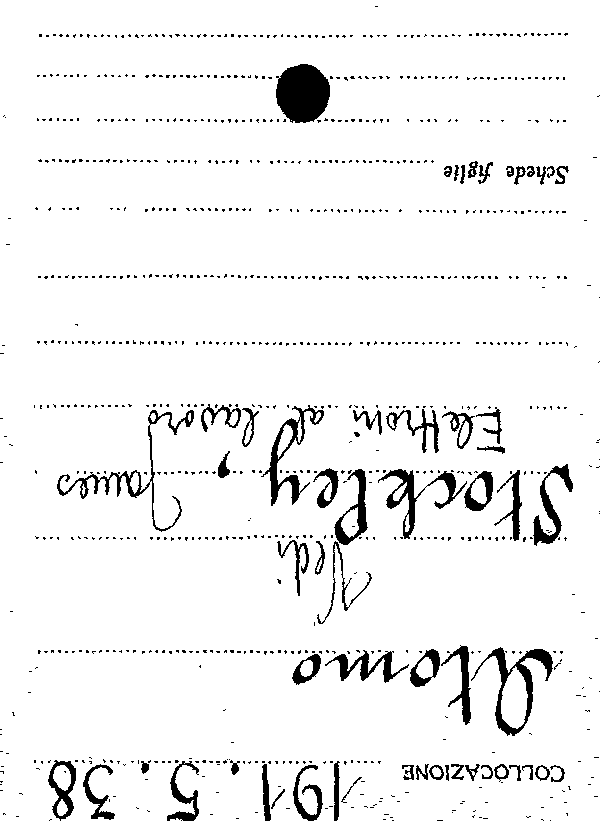 COLLOCAZIONE 191.5.38
Atomo
Vedi
Stockley, James
Elettroni al lavoro
Schede figlie